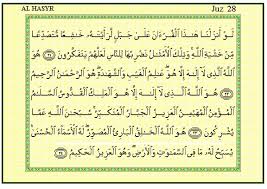 AL HASYR Juz 28
لَوْ أَنزَلْنَا هَٰذَا ٱلْقُرْءَانَ عَلَىٰ جَبَلٍ لَّرَأَيْتَهُۥ خَٰشِعًا مُّتَصَدِّعًا
مِّنْ خَشْيَةِ ٱللَّهِ وَتِلْكَ ٱلْأَمْثَٰلُ نَضْرِبُهَا لِلنَّاسِ لَعَلَّهُمْ يَتَفَكَّرُونَ ٢١ هُوَ
ٱللَّهُ ٱلَّذِى لَآ إِلَٰهَ إِلَّا هُوَ عَٰلِمُ ٱلْغَيْبِ وَٱلشَّهَٰدَةِ هُوَ ٱلرَّحْمَٰنُ ٱلرَّحِيمُ
٢٢ هُوَ ٱللَّهُ ٱلَّذِى لَآ إِلَٰهَ إِلَّا هُوَ ٱلْمَلِكُ ٱلْقُدُّوسُ ٱلسَّلَٰمُ
ٱلْمُؤْمِنُ ٱلْمُهَيْمِنُ ٱلْعَزِيزُ ٱلْجَبَّارُ ٱلْمُتَكَبِّرُ سُبْحَٰنَ ٱللَّهِ عَمَّا
يُشْرِكُونَ ٢٣ هُوَ ٱللَّهُ ٱلْخَٰلِقُ ٱلْبَارِئُ ٱلْمُصَوِّرُ لَهُ ٱلْأَسْمَآءُ ٱلْحُسْنَىٰ
يُسَبِّحُ لَهُۥ مَا فِى ٱلسَّمَٰوَٰتِ وَٱلْأَرْضِ وَهُوَ ٱلْعَزِيزُ ٱلْحَكِيمُ ٢٤